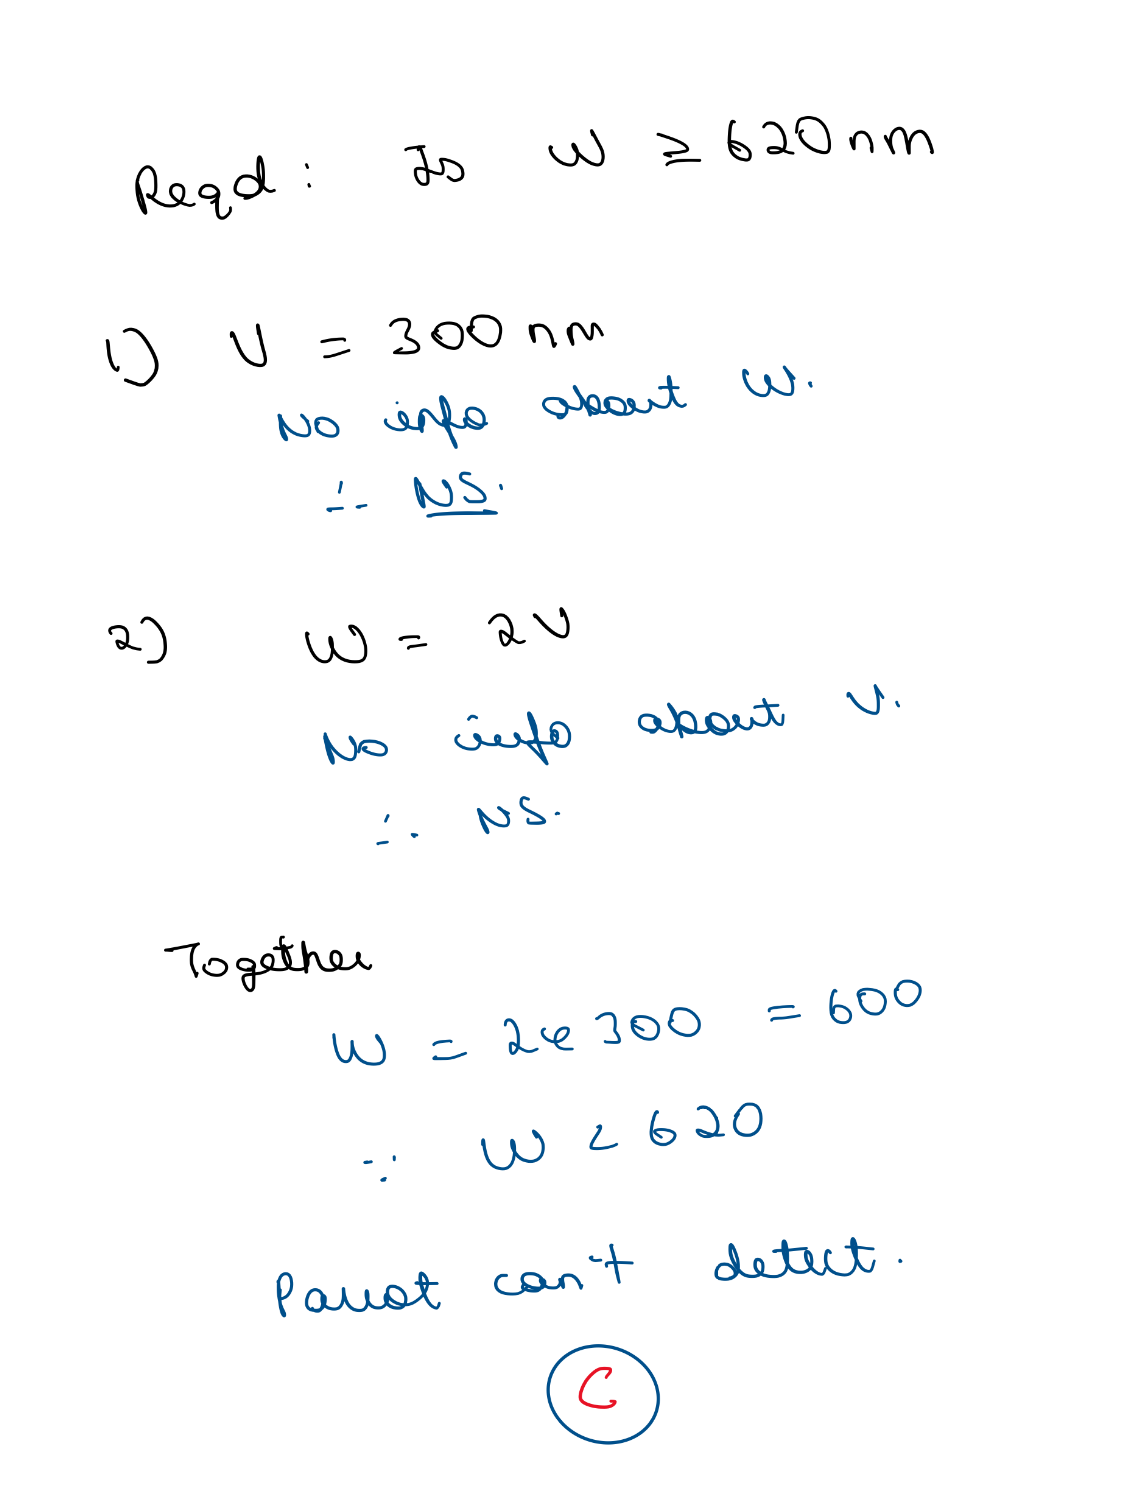 Reqd: Is w ≥ 620 nm
1) V = 300 nm
No info about w.
∴ NS.
2) w = 2V
No info about V.
∴ NS.
Together
w = 2 300 = 600
∵ w < 620
Parrot can't detect.
C